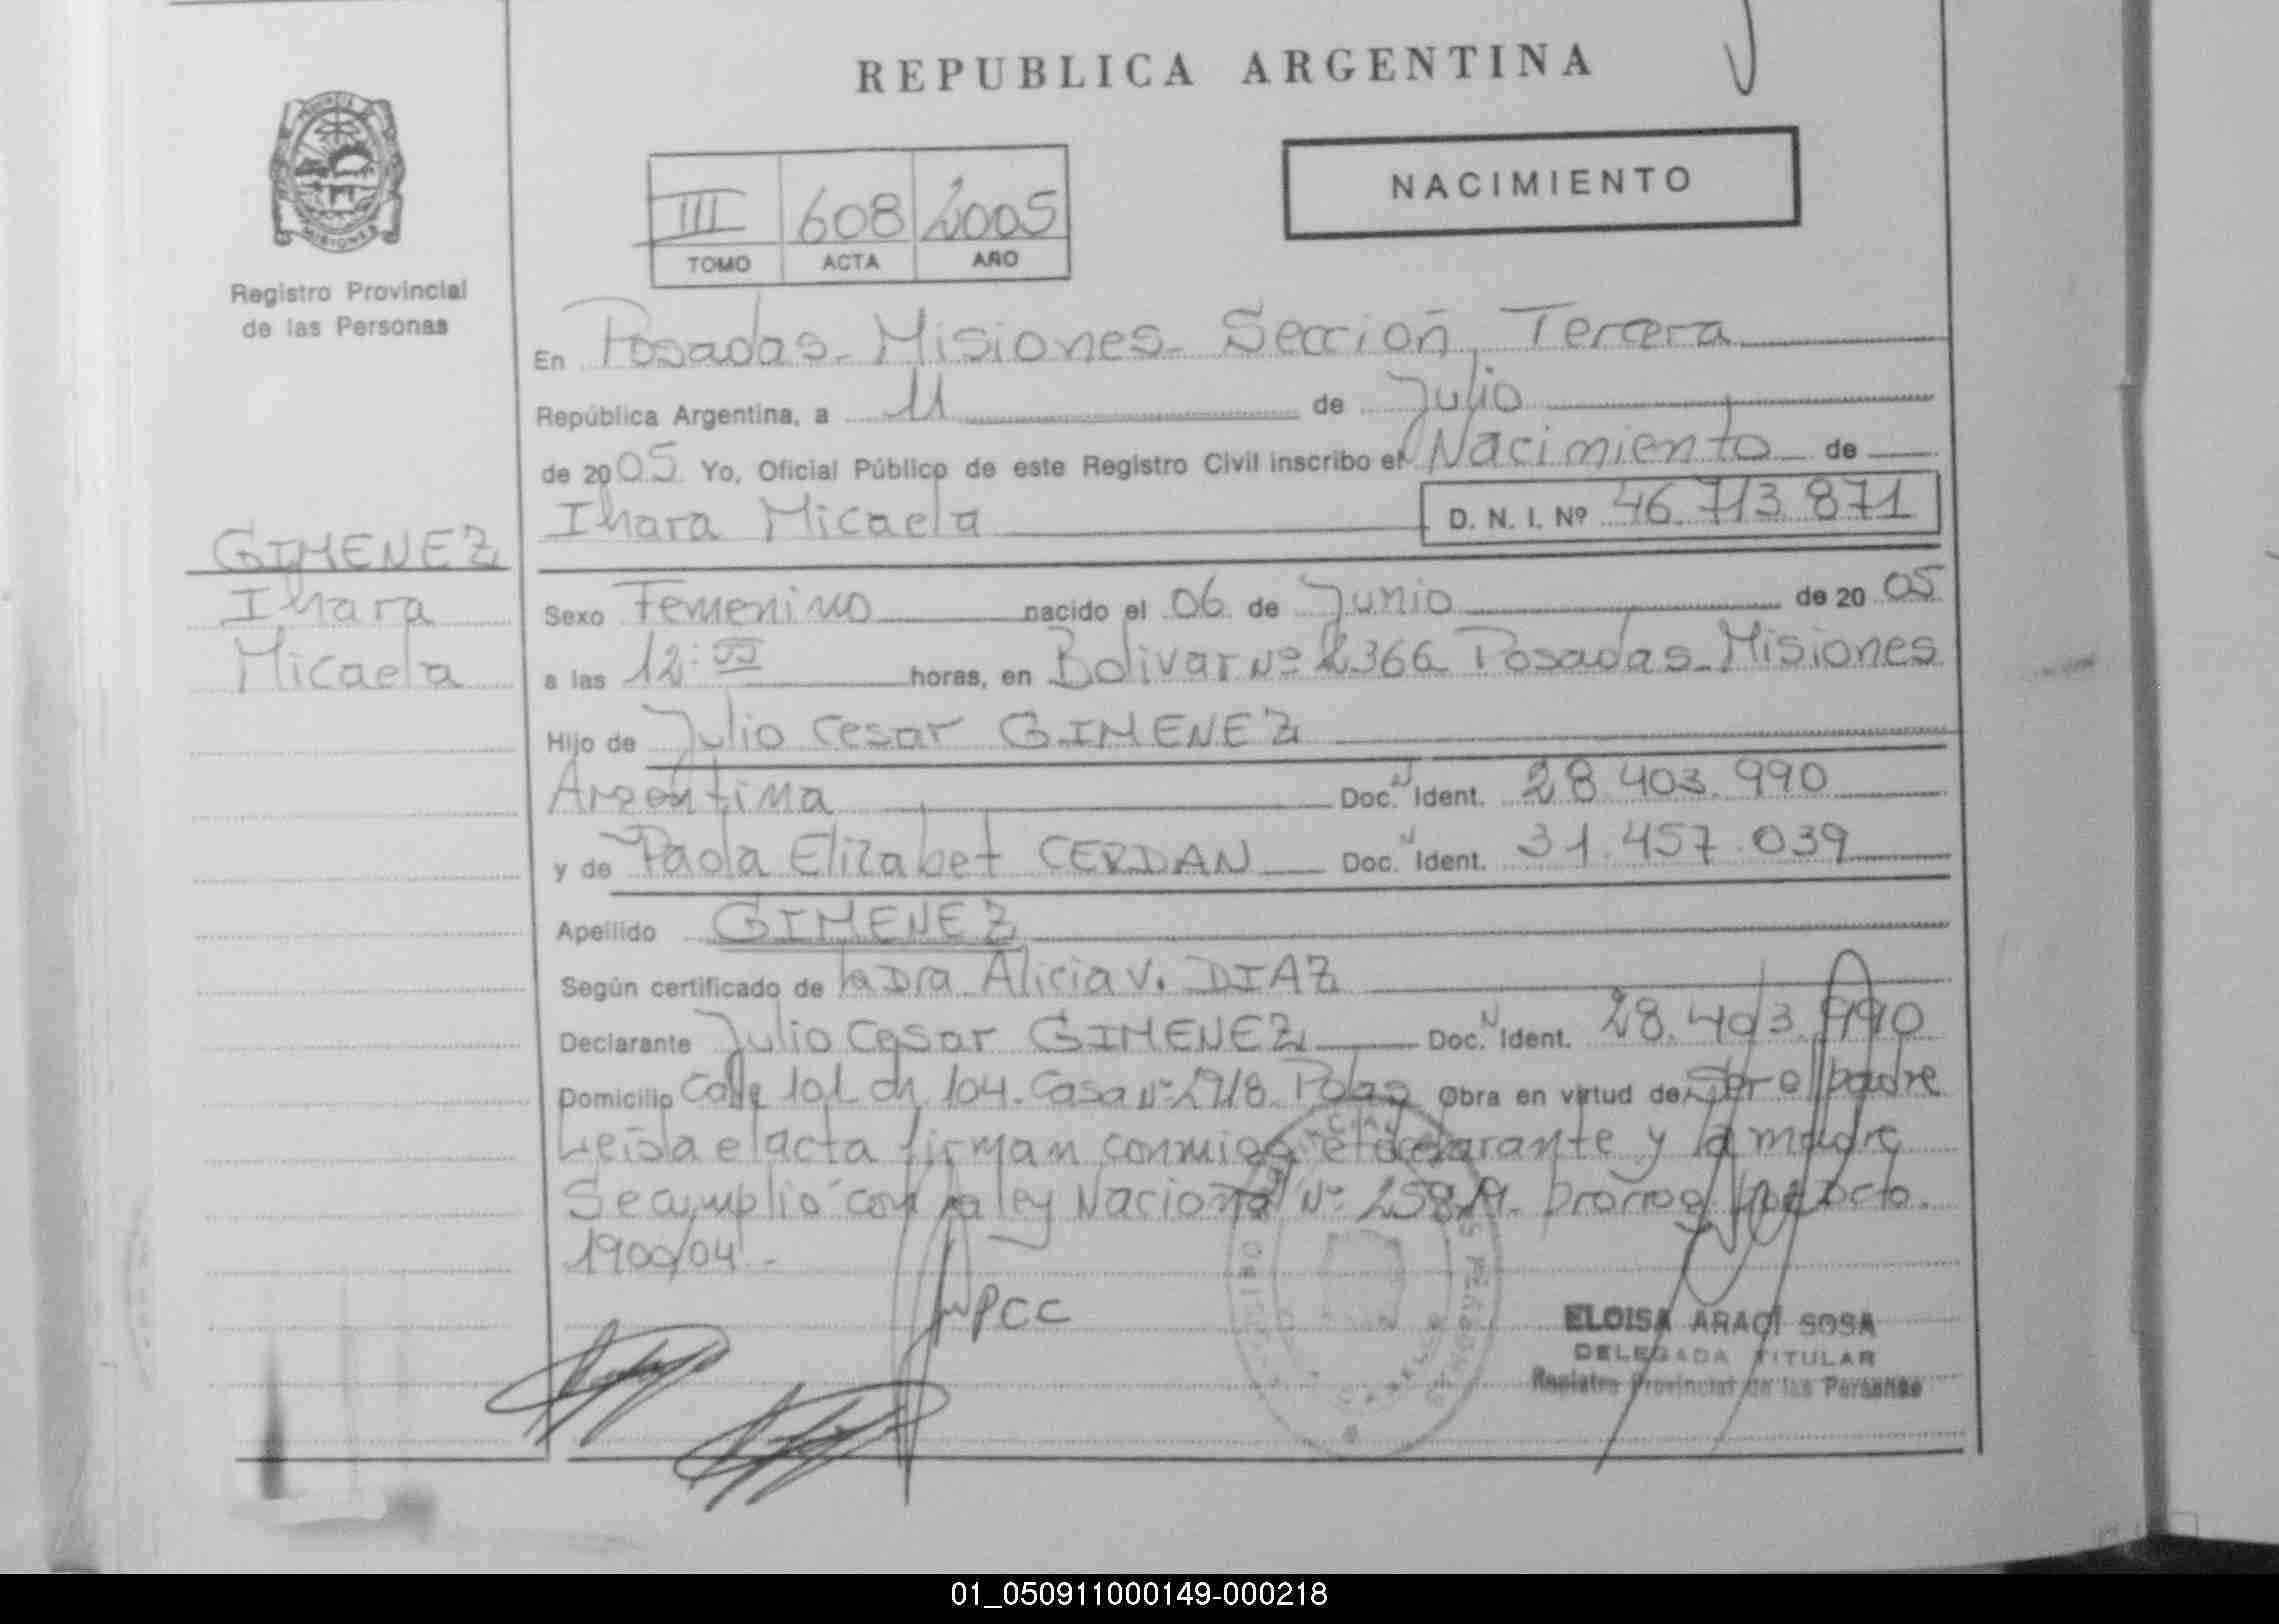 REPUBLICA ARGENTINA
NACIMIENTO
III 608 2005
TOMO ACTA AÑO
MISIONES
Registro Provincial
de las Personas
GIMENEZ
Ihara
Micaela
En Posadas - Misiones - Sección Tercera
República Argentina, a 11 de Julio
de 2005 Yo, Oficial Público de este Registro Civil inscribo el Nacimiento de
Ihara Micaela D. N. I. Nº 46.713.871
Sexo Femenino nacido el 06 de Junio de 20 05
a las 12: horas, en Bolivar Nº 2366 Posadas - Misiones
Hijo de Julio Cesar GIMENEZ
Argentina Doc. Ident. 28.403.990
y de Paola Elizabet CERDAN Doc. Ident. 31.457.039
Apellido GIMENEZ
Según certificado de la Dra Alicia V. DIAZ
Declarante Julio Cesar GIMENEZ Doc. Ident. 28.403.990
Domicilio Calle 101 ch 104. Casa Nº Pdas Obra en virtud de Ser el padre
Leida el acta firman conmigo el declarante y la madre
Se cumplió con la ley Nacional Nº prorrog por Dcto.
1900/04 -
PCC
ELOISA ARACI SOSA
DELEGADA TITULAR
Registro Provincial de las Personas
01_050911000149-000218